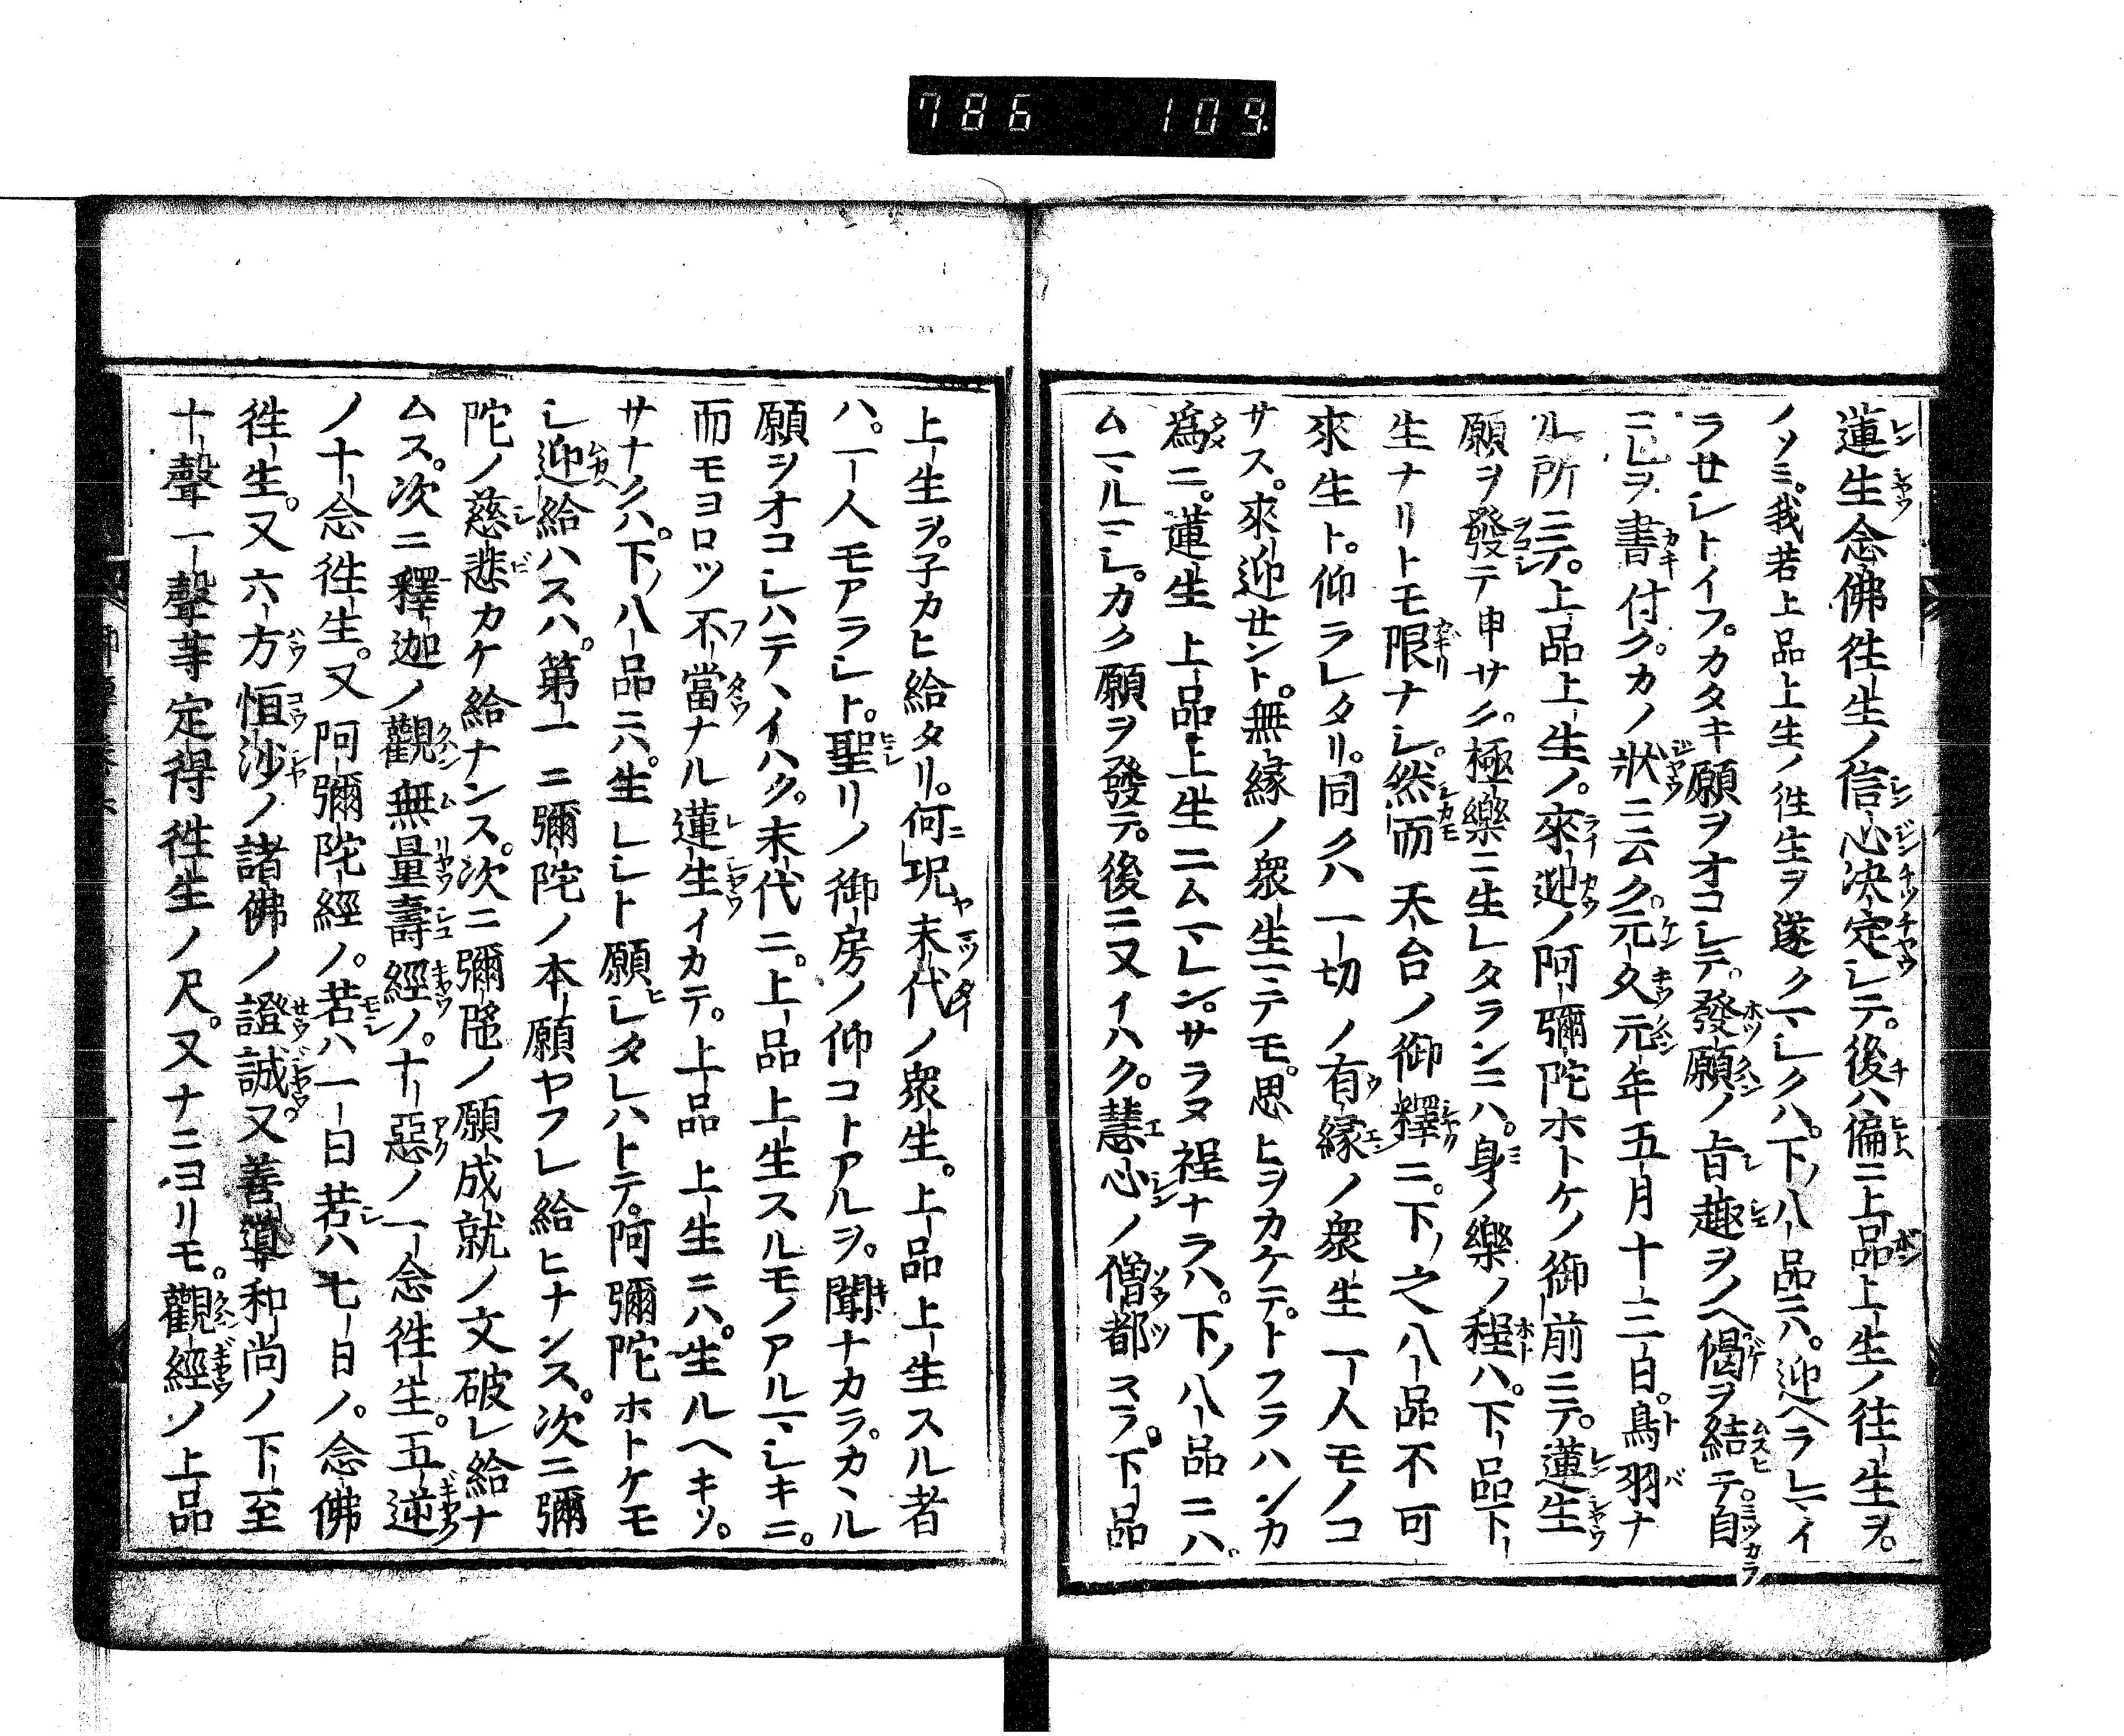 786 109
蓮生念佛徃生ノ信心决定シテ。後ハ偏ニ上品上生ノ往生ヲ。
ノソミ。我若上品上生ノ徃生ヲ遂クマシクハ。下ノ八品ニハ。迎ヘラレマイ
ラサレトイフ。カタキ願ヲオコシテ。發願ノ旨趣ヲノヘ偈ヲ結テ。自
ニレヲ書付ク。カノ狀ニ云ク。元久元年五月十三日。鳥羽ナ
ル所ニテ。上品上生ノ。來迎ノ阿彌陀ホトケノ御前ニテ。蓮生
願ヲ發テ申サク。極樂ニ生レタランニハ。身ノ樂ノ程ハ。下品下
生ナリトモ限ナシ。然而天台ノ御釋ニ。下ノ之八品不可
來生ト。仰ラレタリ。同クハ一切ノ有縁ノ衆生一人モノコ
サス。來迎セント。無縁ノ衆生マテモ。思ヒヲカケテ。トフラハンカ
爲ニ。蓮生上品上生ニムマレン。サラヌ程ナラハ。下ノ八品ニハ
ムマルマシ。カク願ヲ發テ。後ニ又イハク。慧心ノ僧都スラ。下品
上生ヲ。子カヒ給タリ。何况末代ノ衆生。上品上生スル者
ハ。一人モアラレト。聖リノ御房ノ仰コトアルヲ。聞ナカラ。カヽル
願ヲオコシハテヽイハク。末代ニ。上品上生スルモノアルマシキニ。
而モヨロツ不當ナル蓮生イカテ。上品上生ニハ。生ルヘキソ。
サナクハ。下ノ八品ニハ。生レシト願シタレハトテ。阿彌陀ホトケモ
シ迎給ハスハ。第一ニ彌陀ノ本願ヤフレ給ヒナンス。次ニ彌
陀ノ慈悲カケ給ナンス。次ニ彌陀ノ願成就ノ文破レ給ナ
ムス。次ニ釋迦ノ觀無量壽經ノ。十惡ノ一念徃生。五逆
ノ十念徃生。又阿彌陀經ノ。若ハ一日若ハ七日ノ。念佛
徃生。又六方恒沙ノ諸佛ノ證誠。又善導和尚ノ下至
十聲一聲等定得徃生ノ尺。又ナニヨリモ。觀經ノ上品